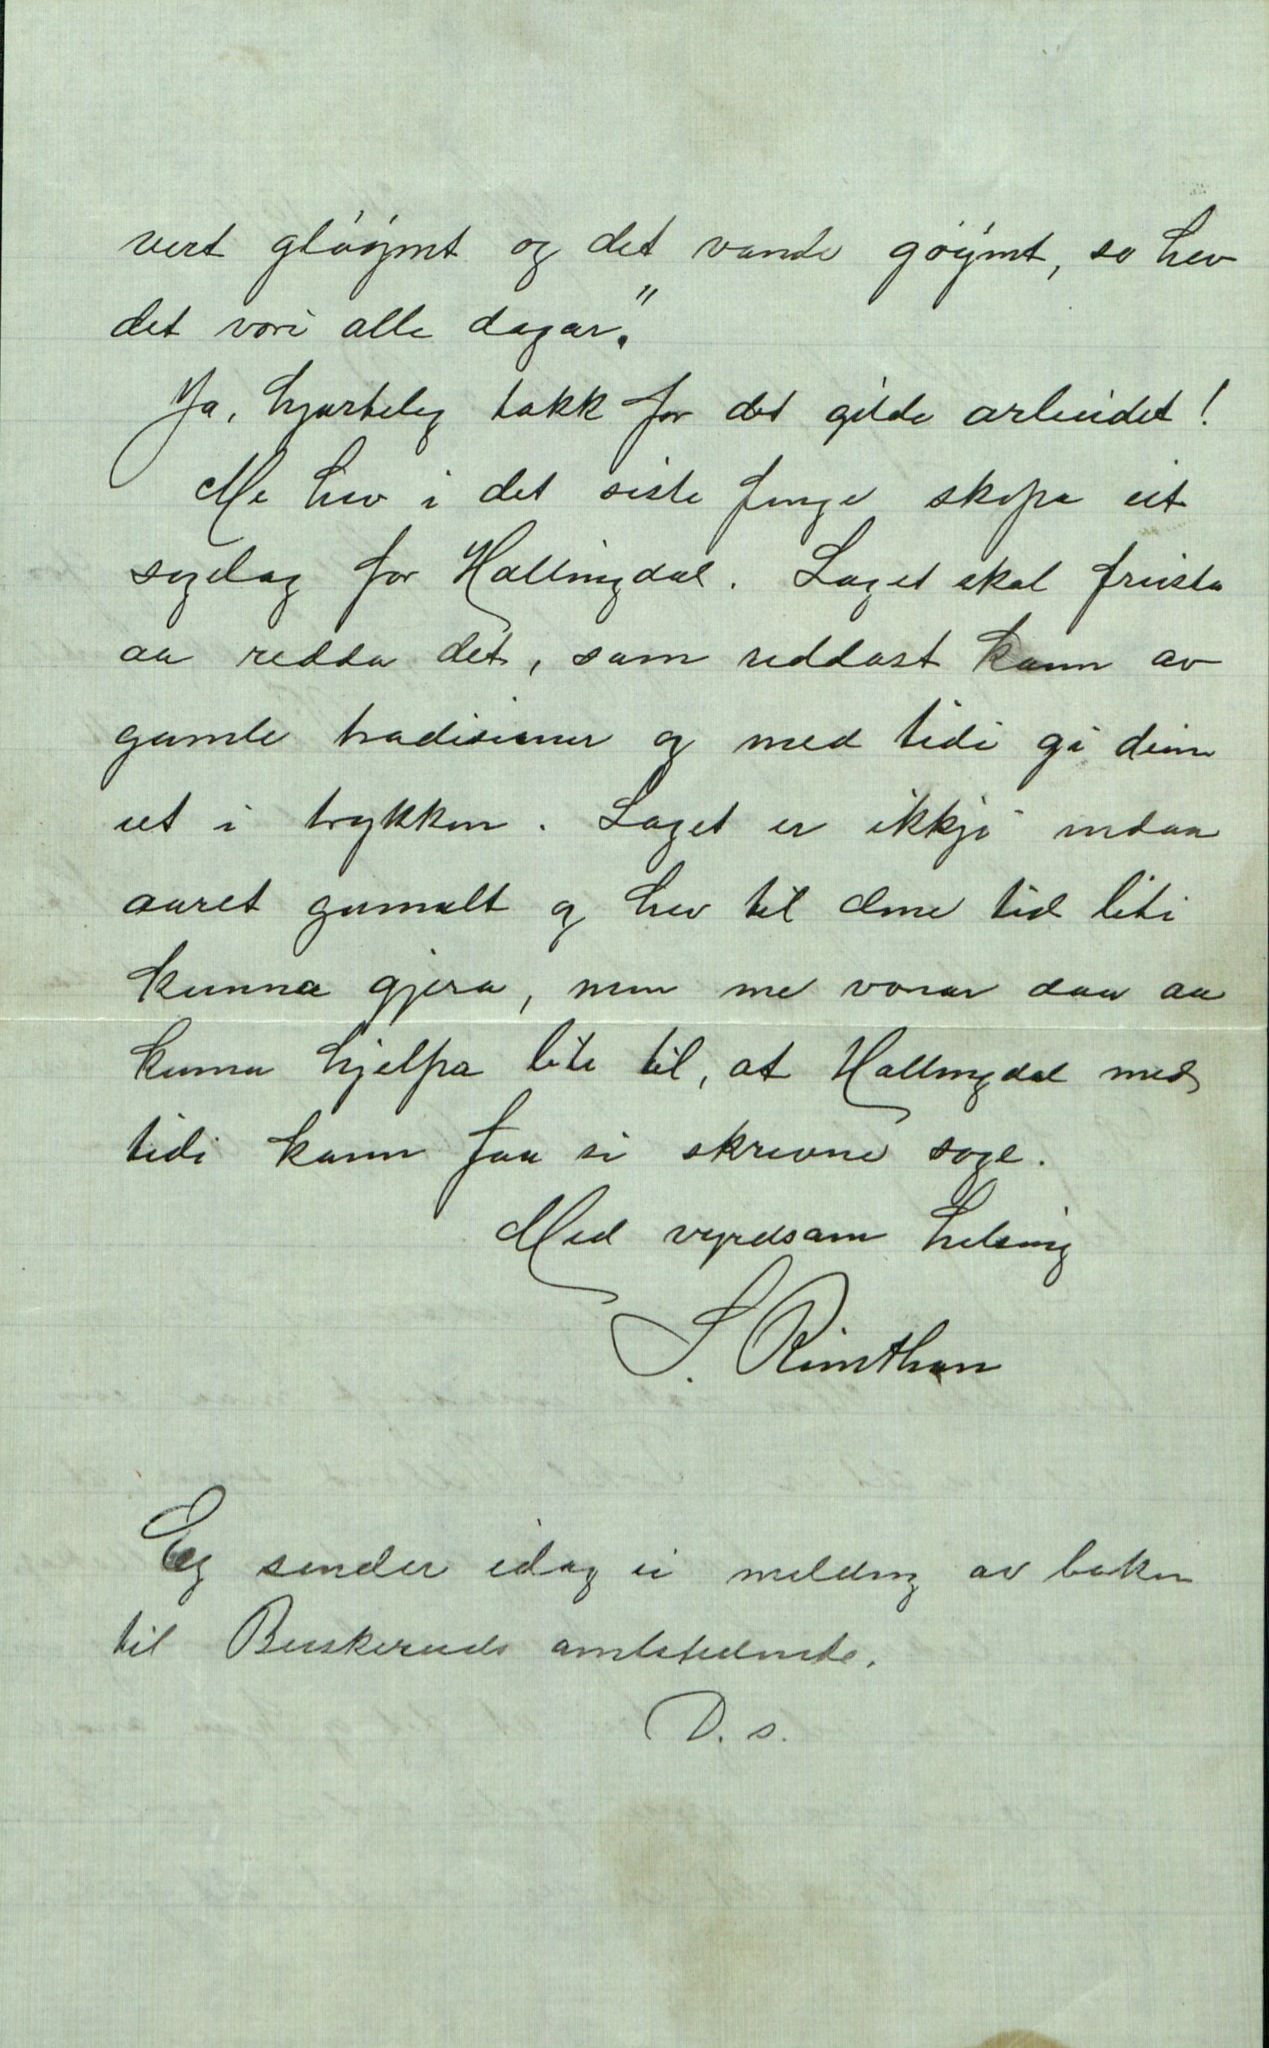 vert gløymt og det vande gøymt, so hev
det vori alle dagar."
Ja, hjarteleg takk for det gilde arbeidet!
Me hev i det siste fenge skipa eit
sogelag for Hallingdal. Laget skal freista
aa redda det, som reddast kann av
gamle tradisioner og med tidi gi deim
ut i trykken. Laget er ikkje endaa
aaret gamalt og hev til denne tid liti
kunna gjera, men me vonar daa aa
kunna hjelpa lite til, at Hallingdal med
tidi kann faa si skrevne soge.
Med vyrdsam helsing
S. Reinthon
Eg sender idag ei melding av boken
til Buskeruds amtstidende.
D. s.